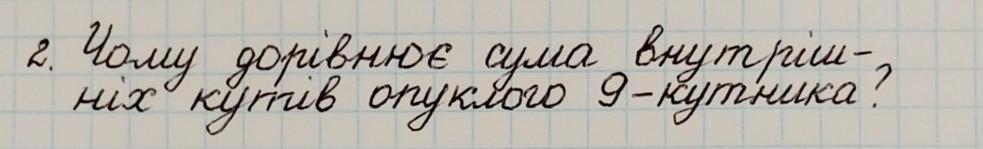 2. Чому дорівнює сума внутріш-
ніх кутів опуклого 9-кутника?